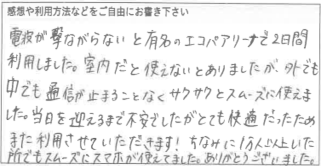 感想や利用方法などをご自由にお書き下さい
電波が撃ながらないと有名のエコパアリーナで2日間
利用しました。室内だと使えないとありましたが、外でも
中でも通信が止まることなくサクサクとスムーズに使えま
した。当日を迎えるまで不安でしたがとても快適だったため
また利用させていただきます!ちなみに1万人以上いた
所でもスムーズにスマホが使えてました。ありがとうございました。